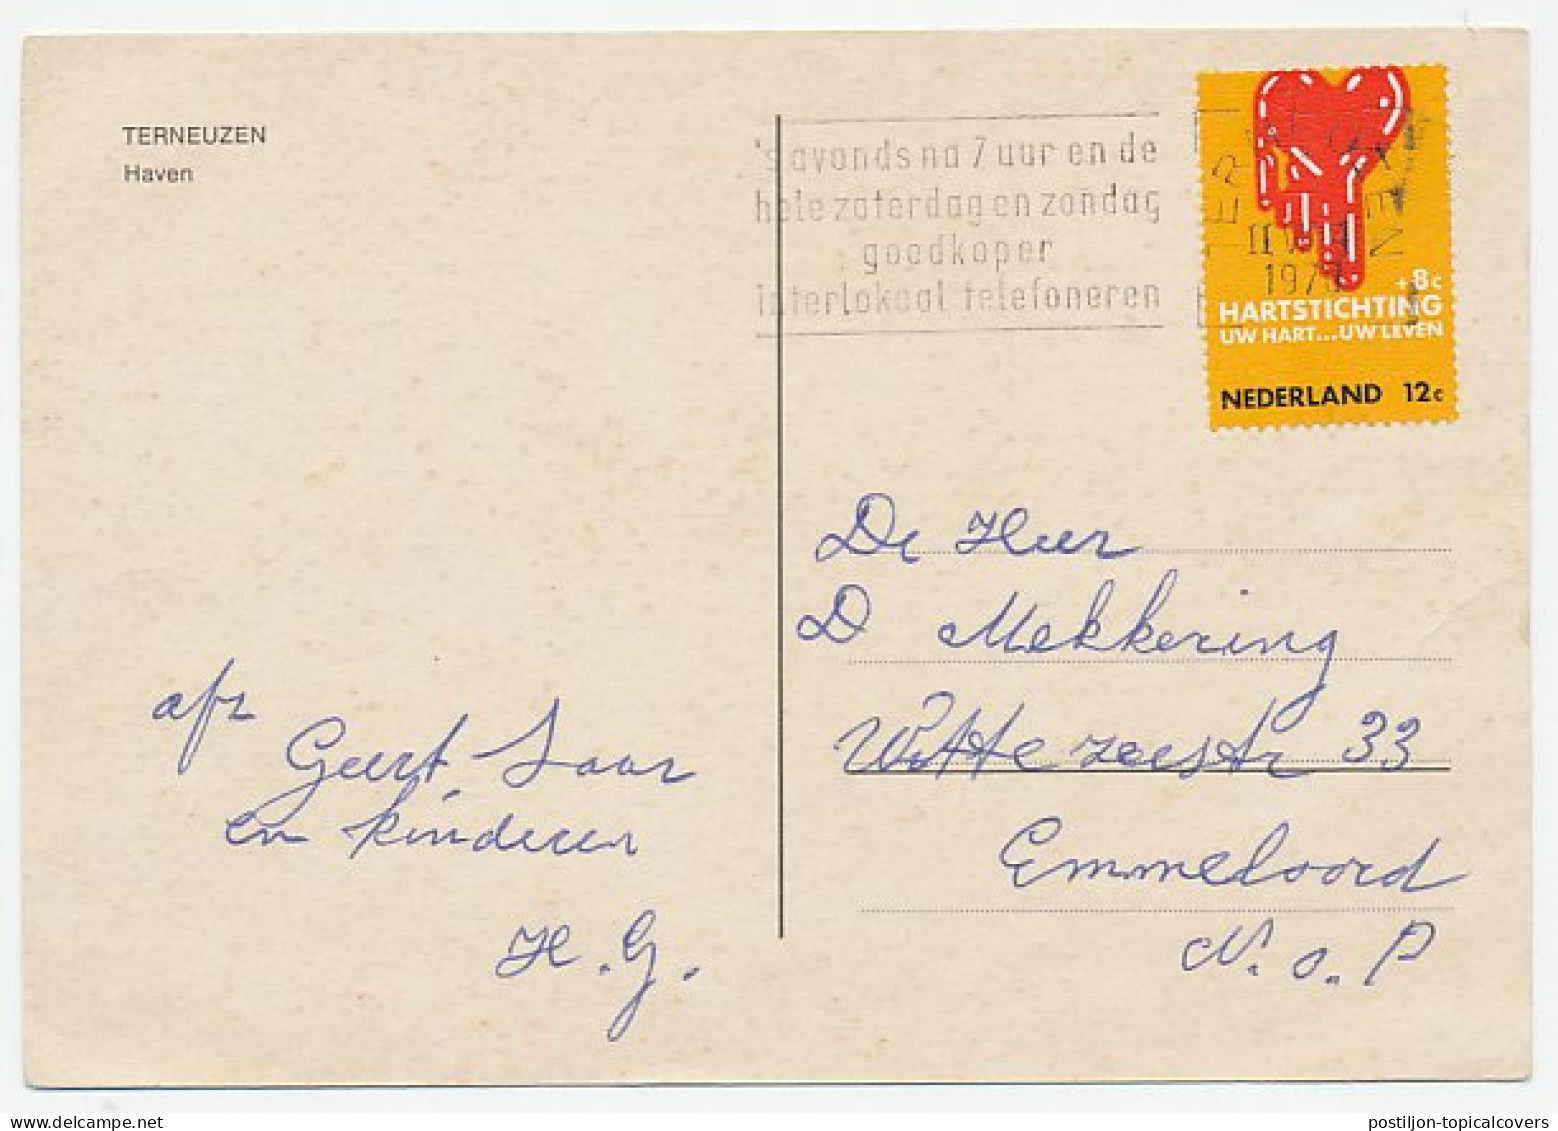 TERNEUZEN
Haven
's avonds na 7 uur en de
hele zaterdag en zondag
goedkoper
interlokaal telefoneren
TERNEUZEN
1970
+8c
HARTSTICHTING
UW HART...UW LEVEN
NEDERLAND 12c
De Heer
D Mekkering
Witte zeestr 33
Emmeloord
N.o.P
afz
Geert Saar
en kinderen
H.G.
postiljon-topicalcovers